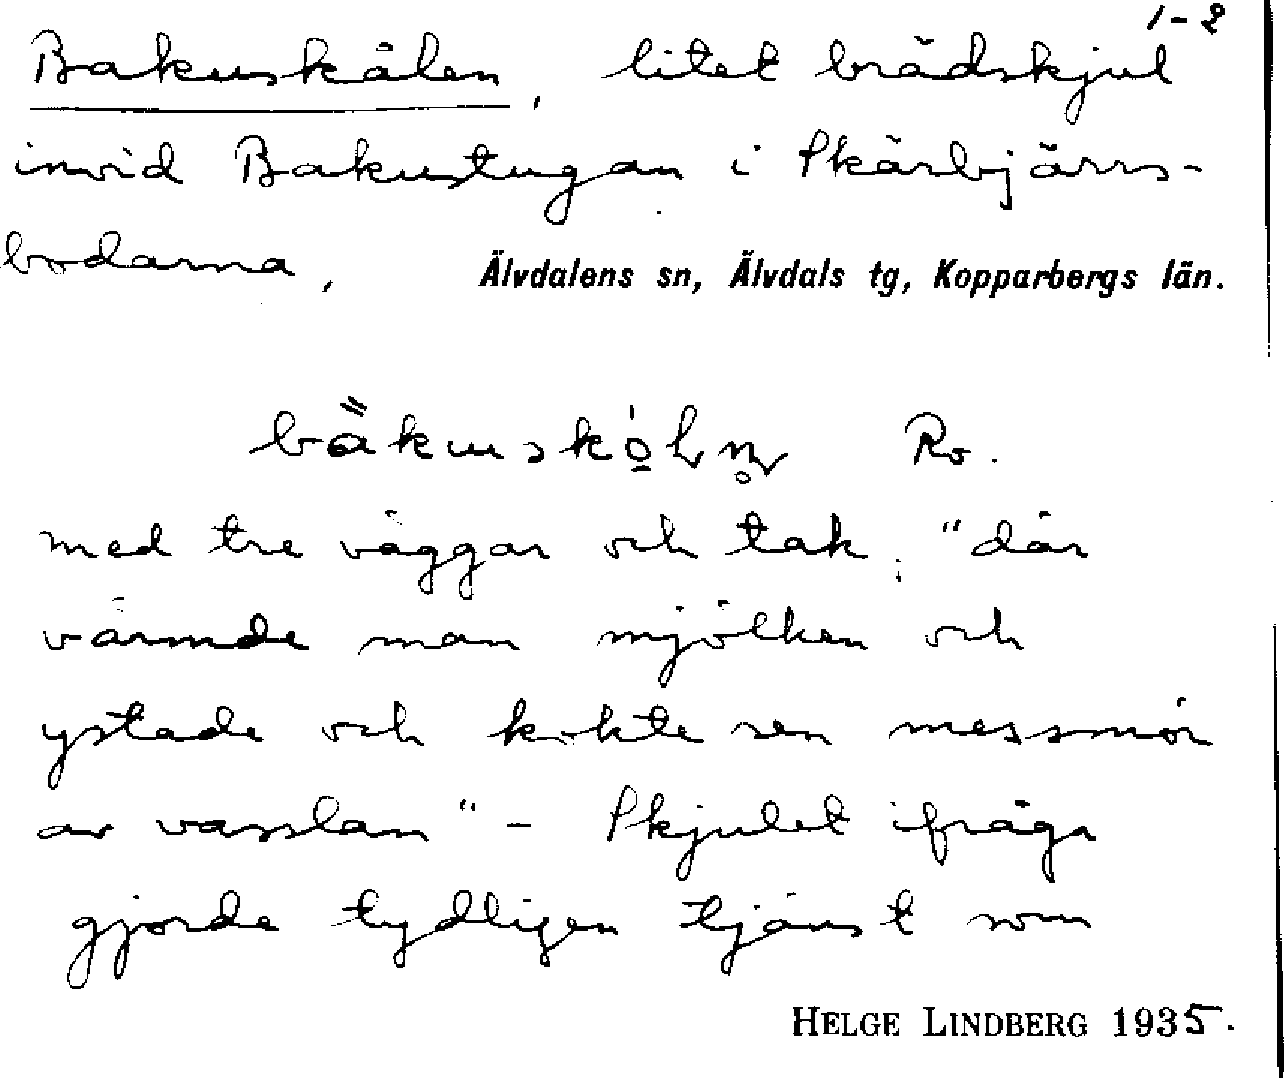 1-2
Bakuskålen, litet brädskjul
invid Bakustugan i Skärbjärns-
bodarna, Älvdalens sn, Älvdals tg, Kopparbergs län.
Ro.
med tre väggar och tak, "där
värmde man mjölken och
ystade och kokte sen messmör
av vasslan" - Skjulet ifråga
gjorde tydligen tjänst som
HELGE LINDBERG 1935.